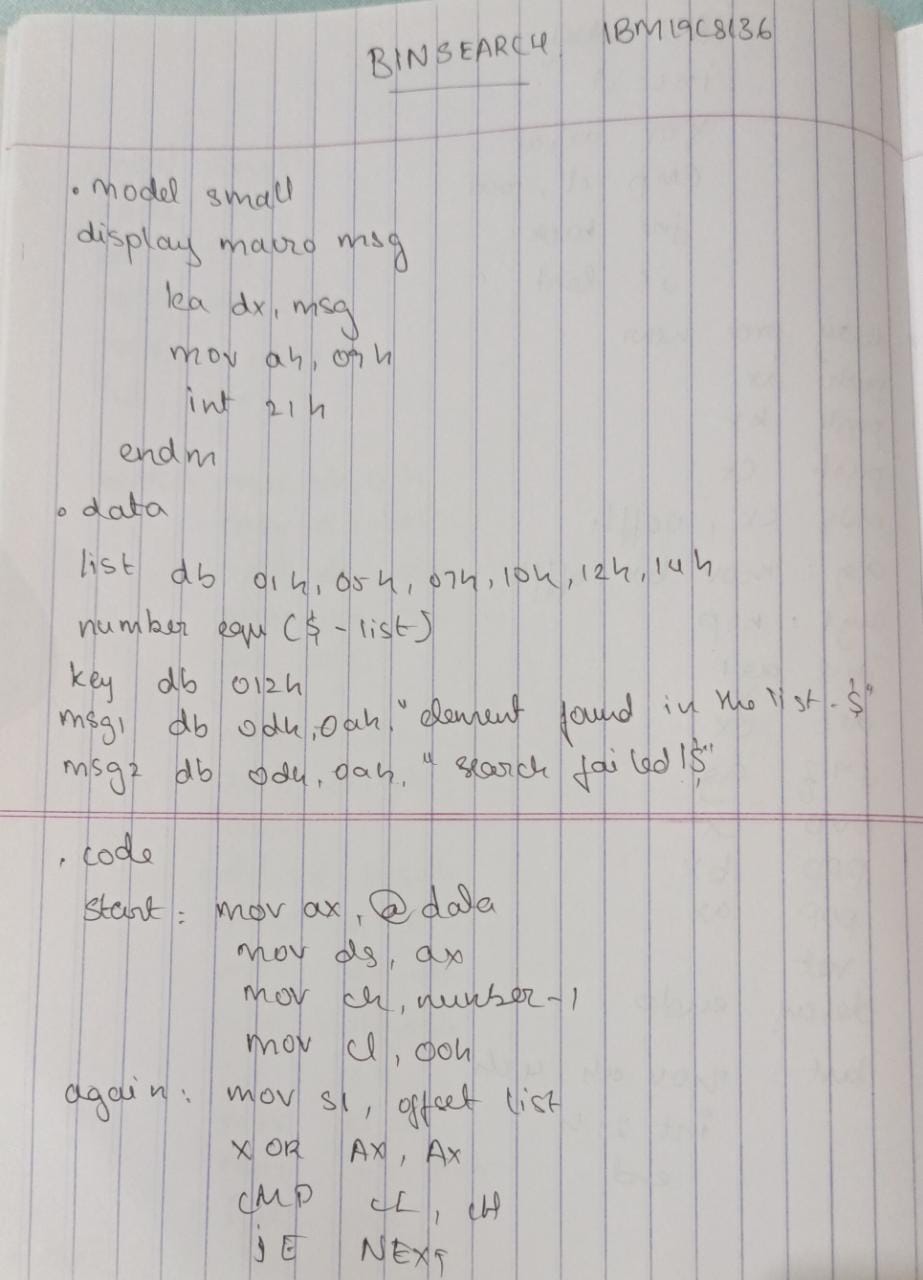 BINSEARCH 1BM19CS136
.model small
display macro msg
lea dx, msg
mov ah, 09h
int 21h
endm
.data
list db 01h, 05h, 07h, 10h, 12h, 14h
number equ ($-list)
key db 012h
msg1 db 0dh, 0ah, "element found in the list.$"
msg2 db 0dh, 0ah, "search failed!$"
.code
start: mov ax, @data
mov ds, ax
mov ch, number-1
mov cl, 00h
again: mov si, offset list
XOR AX, AX
CMP CL, CH
JE NEXT